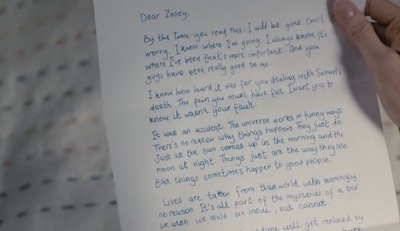 Dear Zooey,
By the time you read this. I will be gone. Don't
worry, I know where I'm going. I always knew. It's
where I've been that's more important. And you
guys have been really good to me.
I know how hard it was for you dealing with Simon's
death. The pain you must have felt. I want you to
know it wasn't your fault.
It was an accident. The universe works in funny ways.
There's no reason why things happen. They just do.
Just as the sun comes up in the morning and the
moon at night. Things just are the way they are.
Bad things sometimes happen to good people.
Lives are taken from this world with seemingly
no reason. It's all part of the mysteries of a box
we wish we could see inside, but cannot.
time will get replaced by